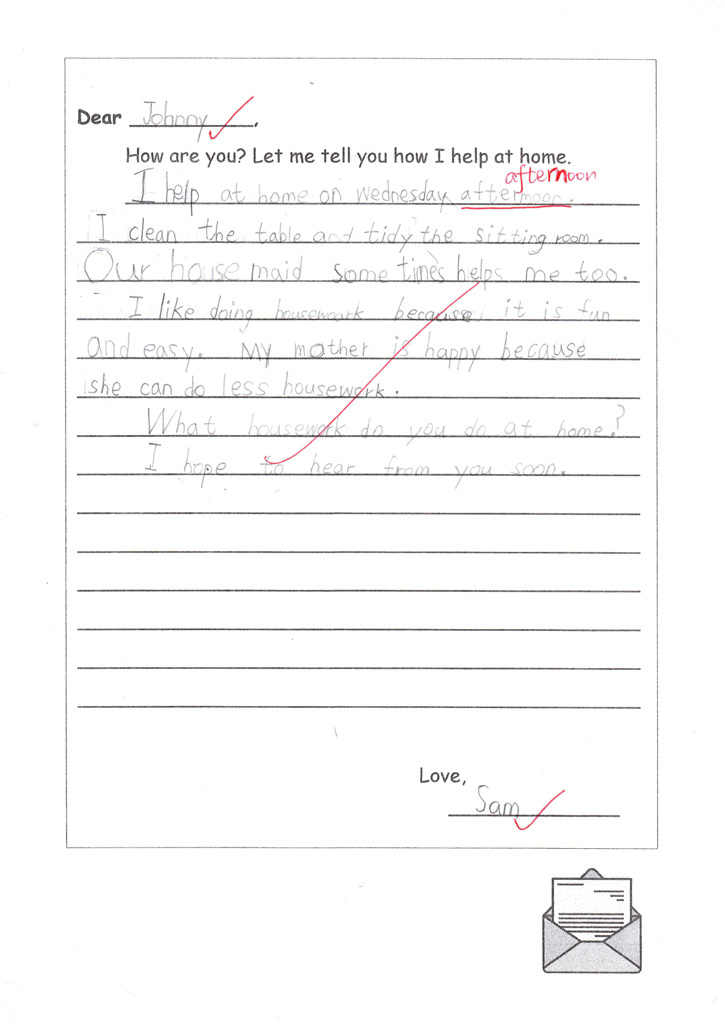 Dear Johnny,
How are you? Let me tell you how I help at home.
afternoon
I help at home on wednesday aftermoon.
I clean the table and tidy the sitting room.
Our house maid some times helps me too.
I like doing housework because it is fun
and easy. My mother is happy because
she can do less housework.
What housework do you do at home?
I hope to hear from you soon.
Love,
Sam